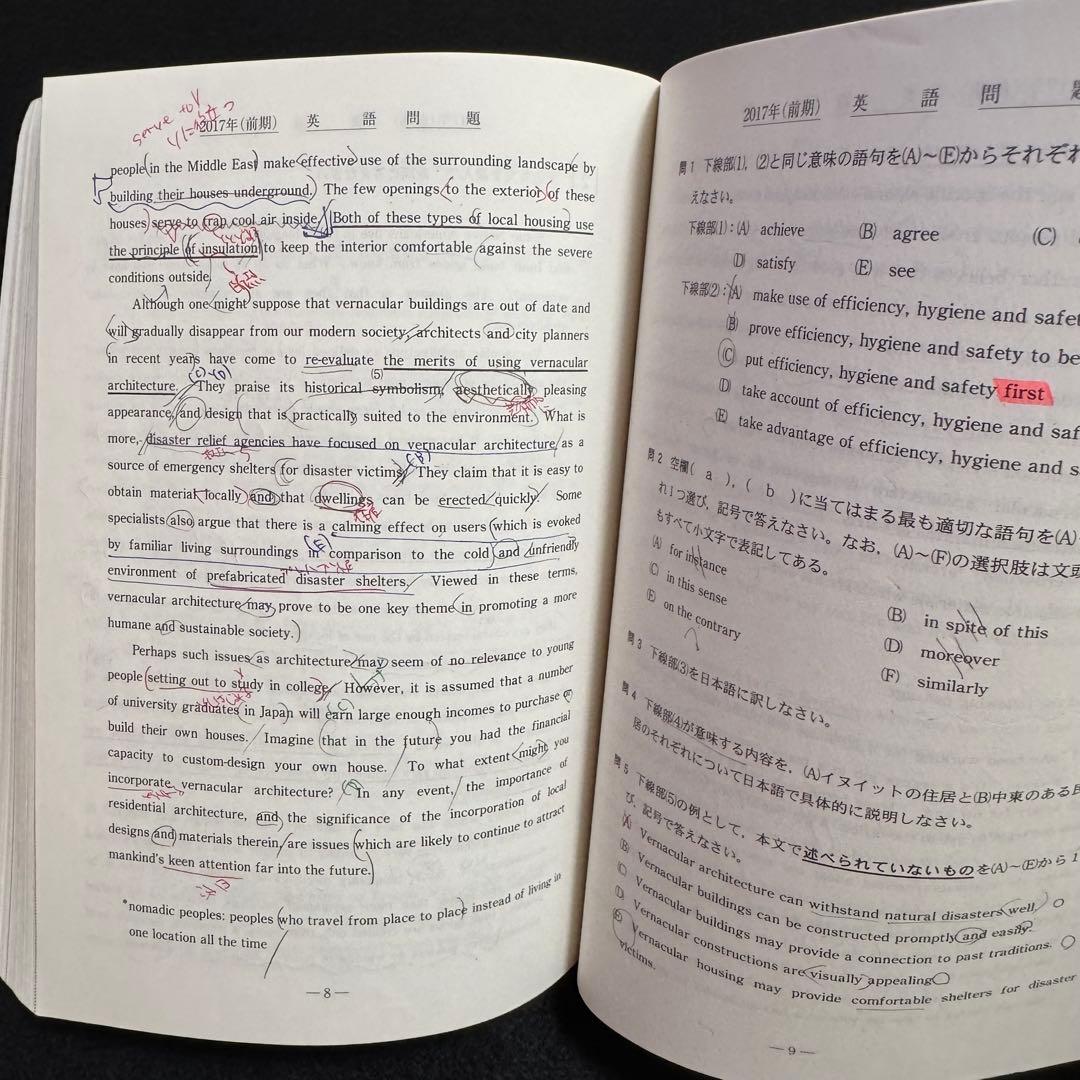 serve to V
2017年(前期) 英 語 問 題
people in the Middle East make effective use of the surrounding landscape by
building their houses underground. The few openings to the exterior of these
houses serve to trap cool air inside. Both of these types of local housing use
the principle of insulation to keep the interior comfortable against the severe
conditions outside.
Although one might suppose that vernacular buildings are out of date and
will gradually disappear from our modern society, architects and city planners
in recent years have come to re-evaluate the merits of using vernacular
(C) (D)
architecture. They praise its historical symbolism, aesthetically pleasing
(5)
appearance, and design that is practically suited to the environment. What is
more, disaster relief agencies have focused on vernacular architecture as a
(B)
source of emergency shelters for disaster victims. They claim that it is easy to
obtain material locally and that dwellings can be erected quickly. Some
specialists also argue that there is a calming effect on users which is evoked
(E)
by familiar living surroundings in comparison to the cold and unfriendly
environment of prefabricated disaster shelters. Viewed in these terms,
vernacular architecture may prove to be one key theme in promoting a more
humane and sustainable society.
Perhaps such issues as architecture may seem of no relevance to young
people setting out to study in college. However, it is assumed that a number
of university graduates in Japan will earn large enough incomes to purchase or
build their own houses. Imagine that in the future you had the financial
capacity to custom-design your own house. To what extent might you
incorporate vernacular architecture? In any event, the importance of
residential architecture, and the significance of the incorporation of local
designs and materials therein, are issues which are likely to continue to attract
mankind's keen attention far into the future.
*nomadic peoples: peoples who travel from place to place instead of living in
one location all the time
—8—
2017年(前期) 英 語 問 題
問1 下線部(1), (2)と同じ意味の語句を(A)~(E)からそれぞれ
えなさい。
下線部(1):(A) achieve (B) agree (C)
(D) satisfy (E) see
下線部(2):(A) make use of efficiency, hygiene and safet
(B) prove efficiency, hygiene and safety to be
(C) put efficiency, hygiene and safety first
(D) take account of efficiency, hygiene and saf
(E) take advantage of efficiency, hygiene and s
問2 空欄( a ), ( b )に当てはまる最も適切な語句を(A)~
れ1つ選び, 記号で答えなさい。なお, (A)~(F)の選択肢は文頭
もすべて小文字で表記してある。
(A) for instance (B) in spite of this
(C) in this sense (D) moreover
(E) on the contrary (F) similarly
問3 下線部(3)を日本語に訳しなさい。
問4 下線部(4)が意味する内容を, (A)イヌイットの住居と(B)中東のある民
居のそれぞれについて日本語で具体的に説明しなさい。
問5 下線部(5)の例として, 本文で述べられていないものを(A)~(E)から1
び, 記号で答えなさい。
(A) Vernacular architecture can withstand natural disasters well.
(B) Vernacular buildings can be constructed promptly and easily.
(C) Vernacular buildings may provide a connection to past traditions.
(D) Vernacular constructions are visually appealing
(E) Vernacular housing may provide comfortable shelters for disaster
victims.
—9—